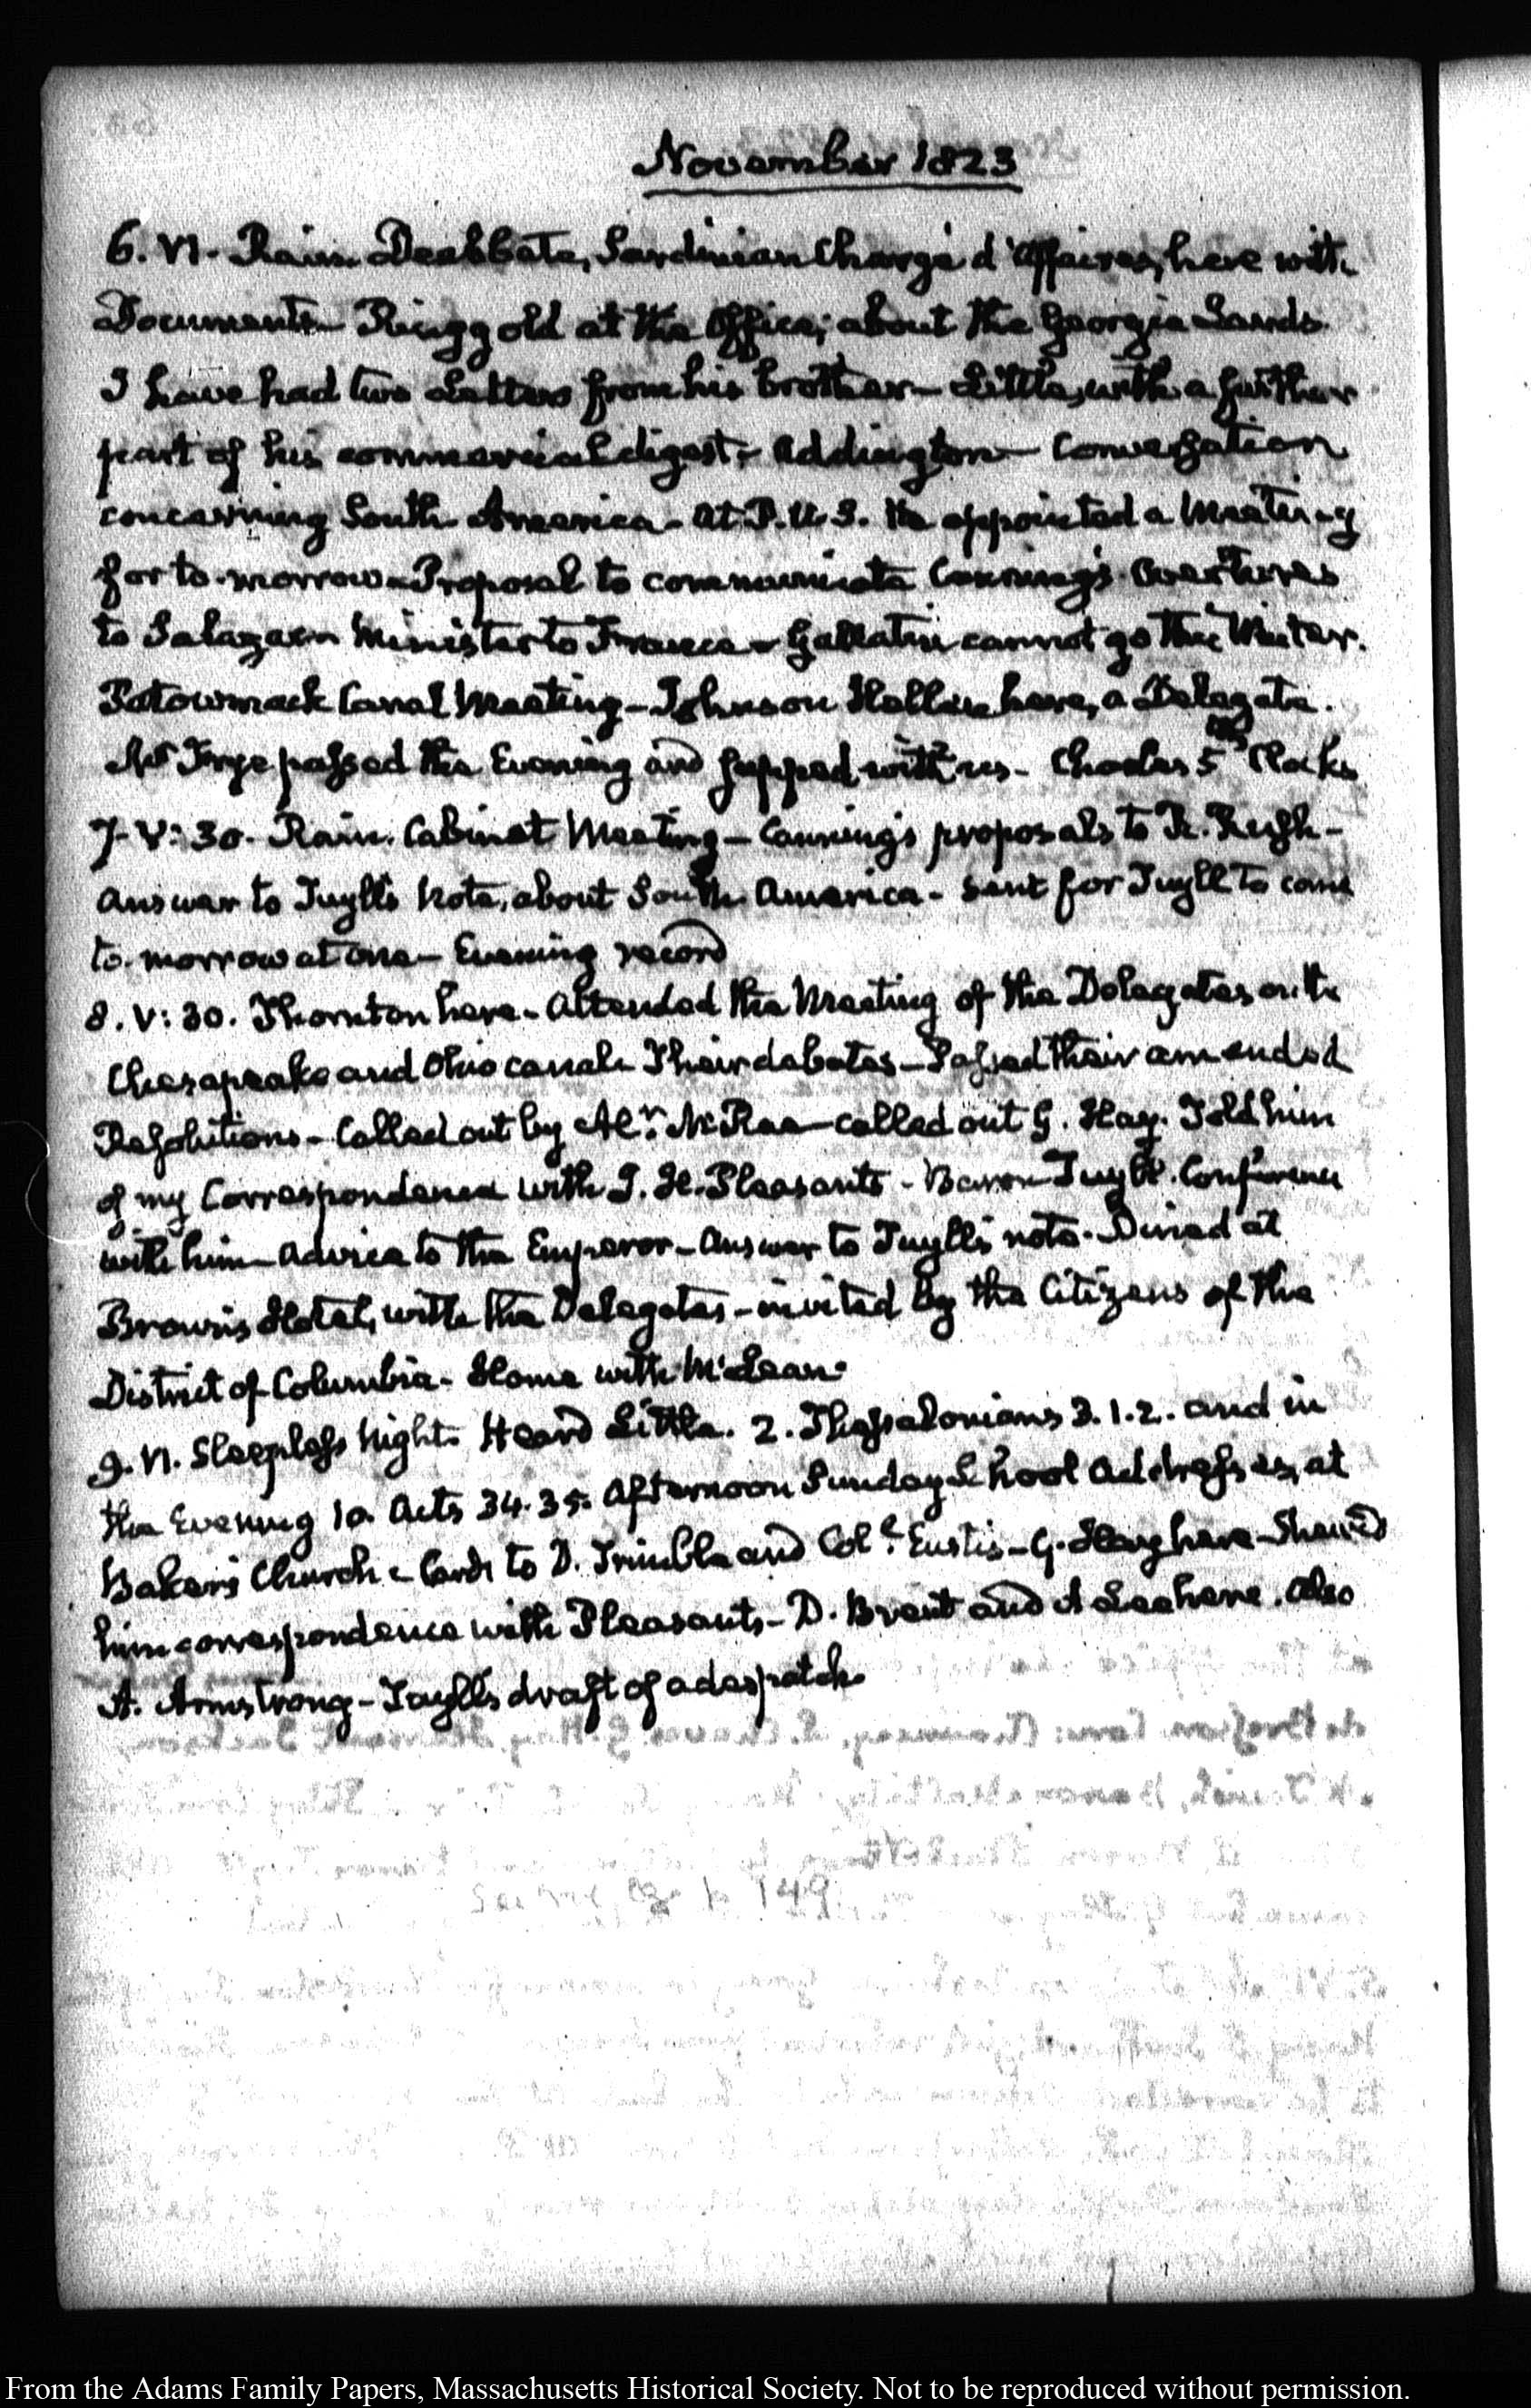 November 1823
6. VI. Rain. Deabbate, Sardinian Chargé d'Affaires, here with
Documents. Ringgold at the Office; about the Georgia Lands.
I have had two Letters from his brother — Little, with a further
part of his commercial digest. Addington — Conversation
concerning South America — at P.U.S. He appointed a Meeting
for to-morrow — Proposal to communicate Canning's overtures
to Salazar — Minister to France — Gallatin cannot go this Winter.
Potowmack Canal Meeting — Johnson Hellen here, a Delegate.
Mr Frye passed the Evening and supped with us — Charles 5th
7. V:30. Rain. Cabinet Meeting — Canning's proposals to R. Rush —
Answer to Tuyll's Note, about South America — Sent for Tuyll to come
to-morrow at one — Evening record
8. V:30. Thornton here — Attended the Meeting of the Delegates on the
Chesapeake and Ohio canal. Their debates — Passed their amended
Resolutions — Called out by Alr. McRae — called out G. Hay. Told him
of my Correspondence with J. H. Pleasants — Baron Tuyll. Conference
with him — advice to the Emperor — Answer to Tuyll's note. Dined at
Brown's Hotel, with the Delegates — invited by the Citizens of the
District of Columbia — Home with McLean.
9. VI. Sleepless Night. Heard Little. 2. Thessalonians 3. 1. 2. and in
the Evening 10. Acts 34. 35. Afternoon Sunday School Addresses, at
Baker's Church — Cards to D. Trimble and Coll. Eustis — G. Hay here — Shewed
him correspondence with Pleasants — D. Brent and A Lee here. Also
A. Armstrong — Tuyll's draft of a despatch.
From the Adams Family Papers, Massachusetts Historical Society. Not to be reproduced without permission.